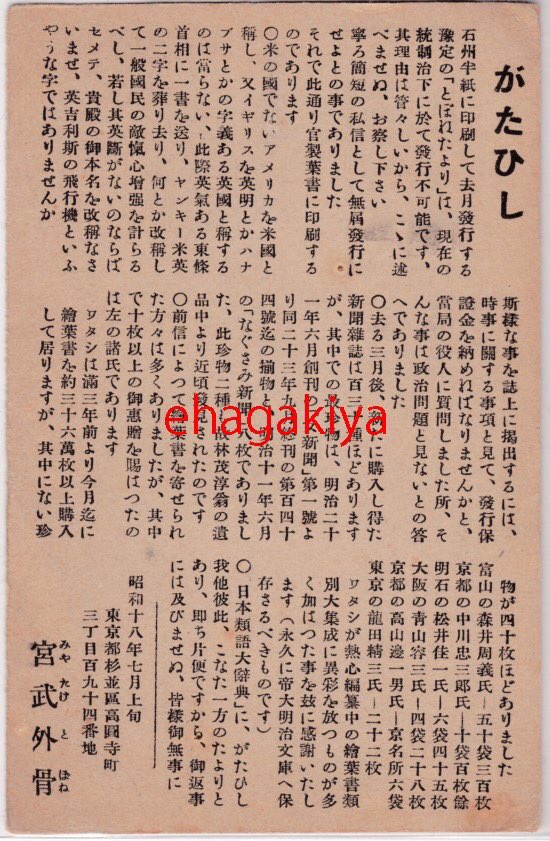 がたひし
石州半紙に印刷して去月發行する
豫定の「とぼれたより」は、現在の
統制治下に於て發行不可能です、
其理由は管々しいから、こゝに述
べませぬ、お察し下さい
寧ろ簡短の私信として無屆發行に
せよとの事でありました
それで此通り官製葉書に印刷する
のであります
〇米の國でないアメリカを米國と
稱し、又イギリスを英明とかハナ
ブサとかの字義ある英國と稱する
のは當らない、此際英氣ある東條
首相に一書を送り、ヤンキー米英
の二字を葬り去り、何とか改稱し
て一般國民の敵愾心增强を計らる
べし、若し其英斷がないのならば
セメテ、貴殿の御本名を改稱なさ
いませ、英吉利斯の飛行機といふ
やうな字ではありませんか
斯樣な事を誌上に揭出するには、
時事に關する事項と見て、發行保
證金を納めればなりませんかと、
當局の役人に質問しました所、そ
んな事は政治問題と見ないとの答
へでありました
〇去る三月後、に購入し得た
新聞雜誌は百三種ほどあります
が、其中での珍物は、明治二十
一年六月創刊の新聞」第一號よ
り同二十三年九月終刊の第百四十
四號迄の揃物と、明治十一年六月
の「なぐさみ新聞」八枚でありまし
た、此珍物二種は故林茂淳翁の遺
品中より近頃發見されたのです
〇前信によつて葉書を寄せられ
た方々は多くありましたが、其中
で十枚以上の御惠贈を賜はつたの
は左の諸氏であります
ワタシは滿三年前より今月迄に
繪葉書を約三十六萬枚以上購入
して居りますが、其中にない珍
物が四十枚ほどありました
富山の森井周義氏―五十袋三百枚
京都の中川忠三郎氏―十袋百枚餘
明石の松井佳一氏―六袋四十五枚
大阪の靑山容三氏―四袋二十八枚
京都の高山邊一男氏―京名所六袋
東京の龍田精三氏―二十二枚
ワタシが熱心編纂中の繪葉書類
別大集成に異彩を放つものが多
く加はつた事を玆に感謝いたし
ます（永久に帝大明治文庫へ保
存さるべきものです）
〇『日本類語大辭典』に、がたひし
我他彼此、こなた一方のたよりと
あり、卽ち片便ですから、御返事
には及びませぬ、皆樣御無事に
昭和十八年七月上旬
東京都杉並區高圓寺町
三丁目百九十四番地
宮武外骨
みやたけとほね
ehagakiya